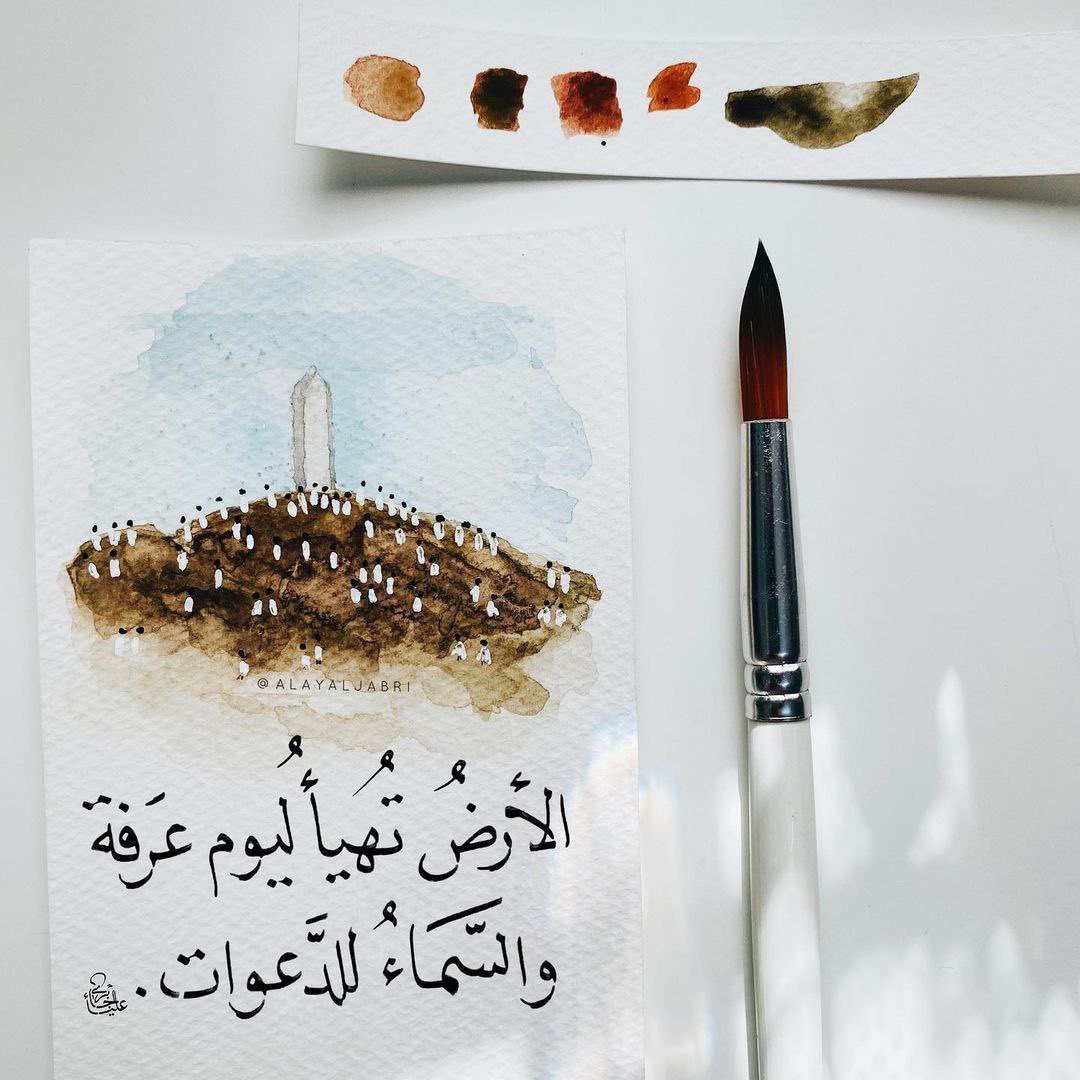 @ALAYALJABRI
الأرضُ تُهيأُ ليوم عرَفة
والسَّمَاءُ للدَّعوات.